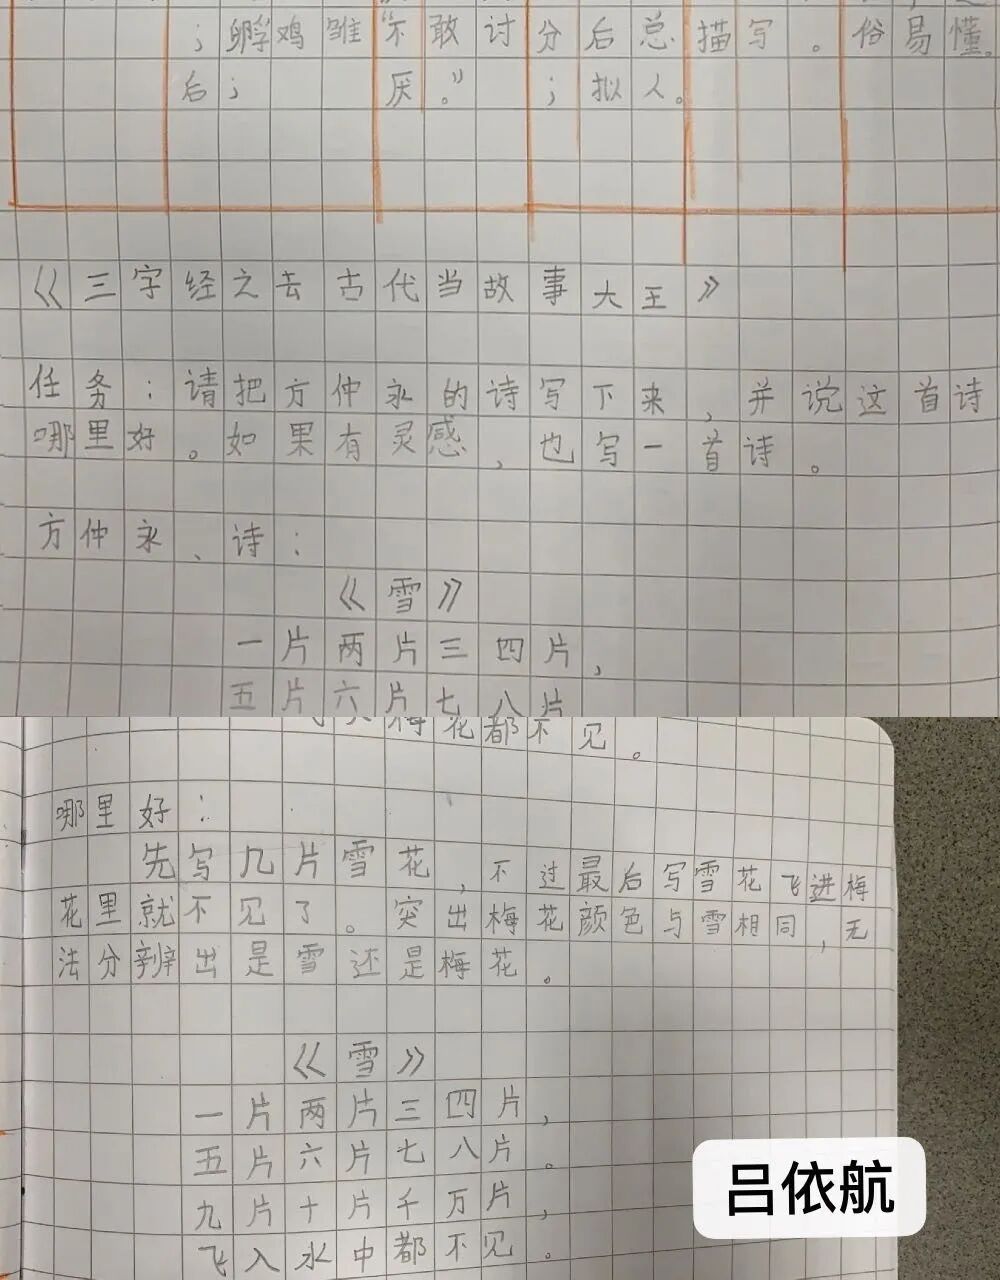 ；孵鸡雏“不敢讨分后总描写。俗易懂。
后；厌。”；拟人。
《三字经之去古代当故事大王》
任务：请把方仲永的诗写下来，并说这首诗
哪里好。如果有灵感，也写一首诗。
方仲永、诗：
《雪》
一片两片三四片，
五片六片七八片
梅花都不见。
哪里好：
先写几片雪花，不过最后写雪花飞进梅
花里就不见了。突出梅花颜色与雪相同，无
法分辨出是雪还是梅花。
《雪》
一片两片三四片，
五片六片七八片。
九片十片千万片，
飞入水中都不见。
吕依航